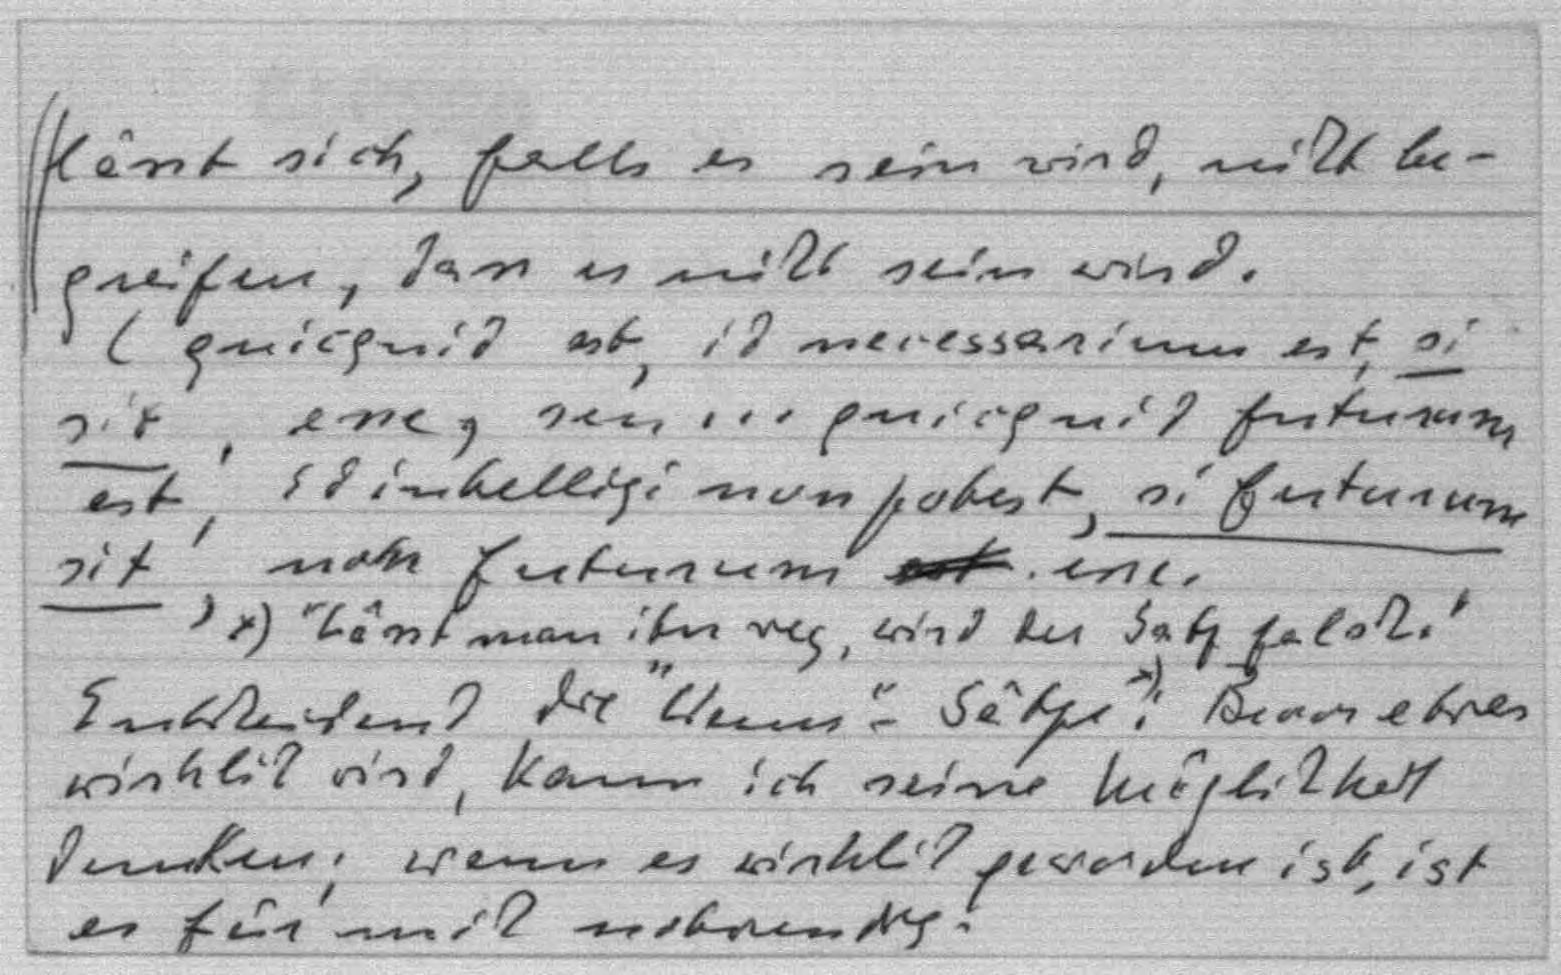 läßt sich, falls es sein wird, nicht be-
greifen, dass es nicht sein wird.
(quicquid est, id necessarium est, si
sit, esse, seu ... quicquid futurum
est, id intelligi non potest, si futurum
sit, non futurum esse.
x) "Läßt man ihn weg, wird der Satz falsch."
Entscheidend die "Wenn"-Sätze x): Bevor etwas
wirklich wird, kann ich seine Möglichkeit
denken; wenn es wirklich geworden ist, ist
es für mich notwendig.